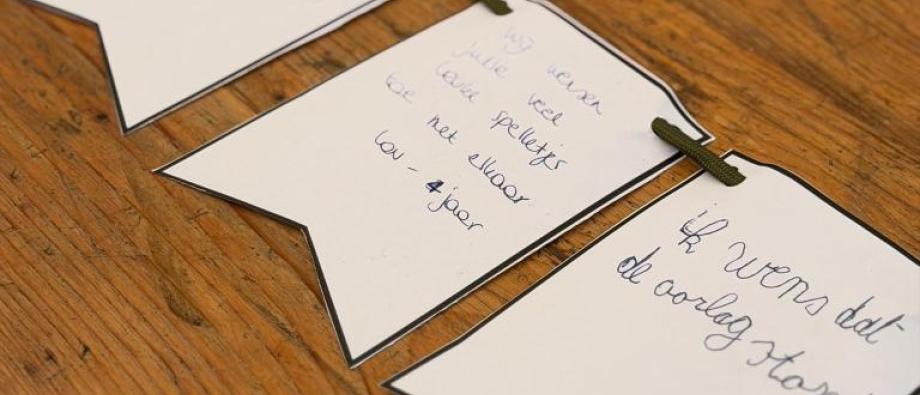 wij wensen
jullie veel
leuke spelletjes
toe met elkaar
Lou - 4 jaar
ik wens dat
de oorlog